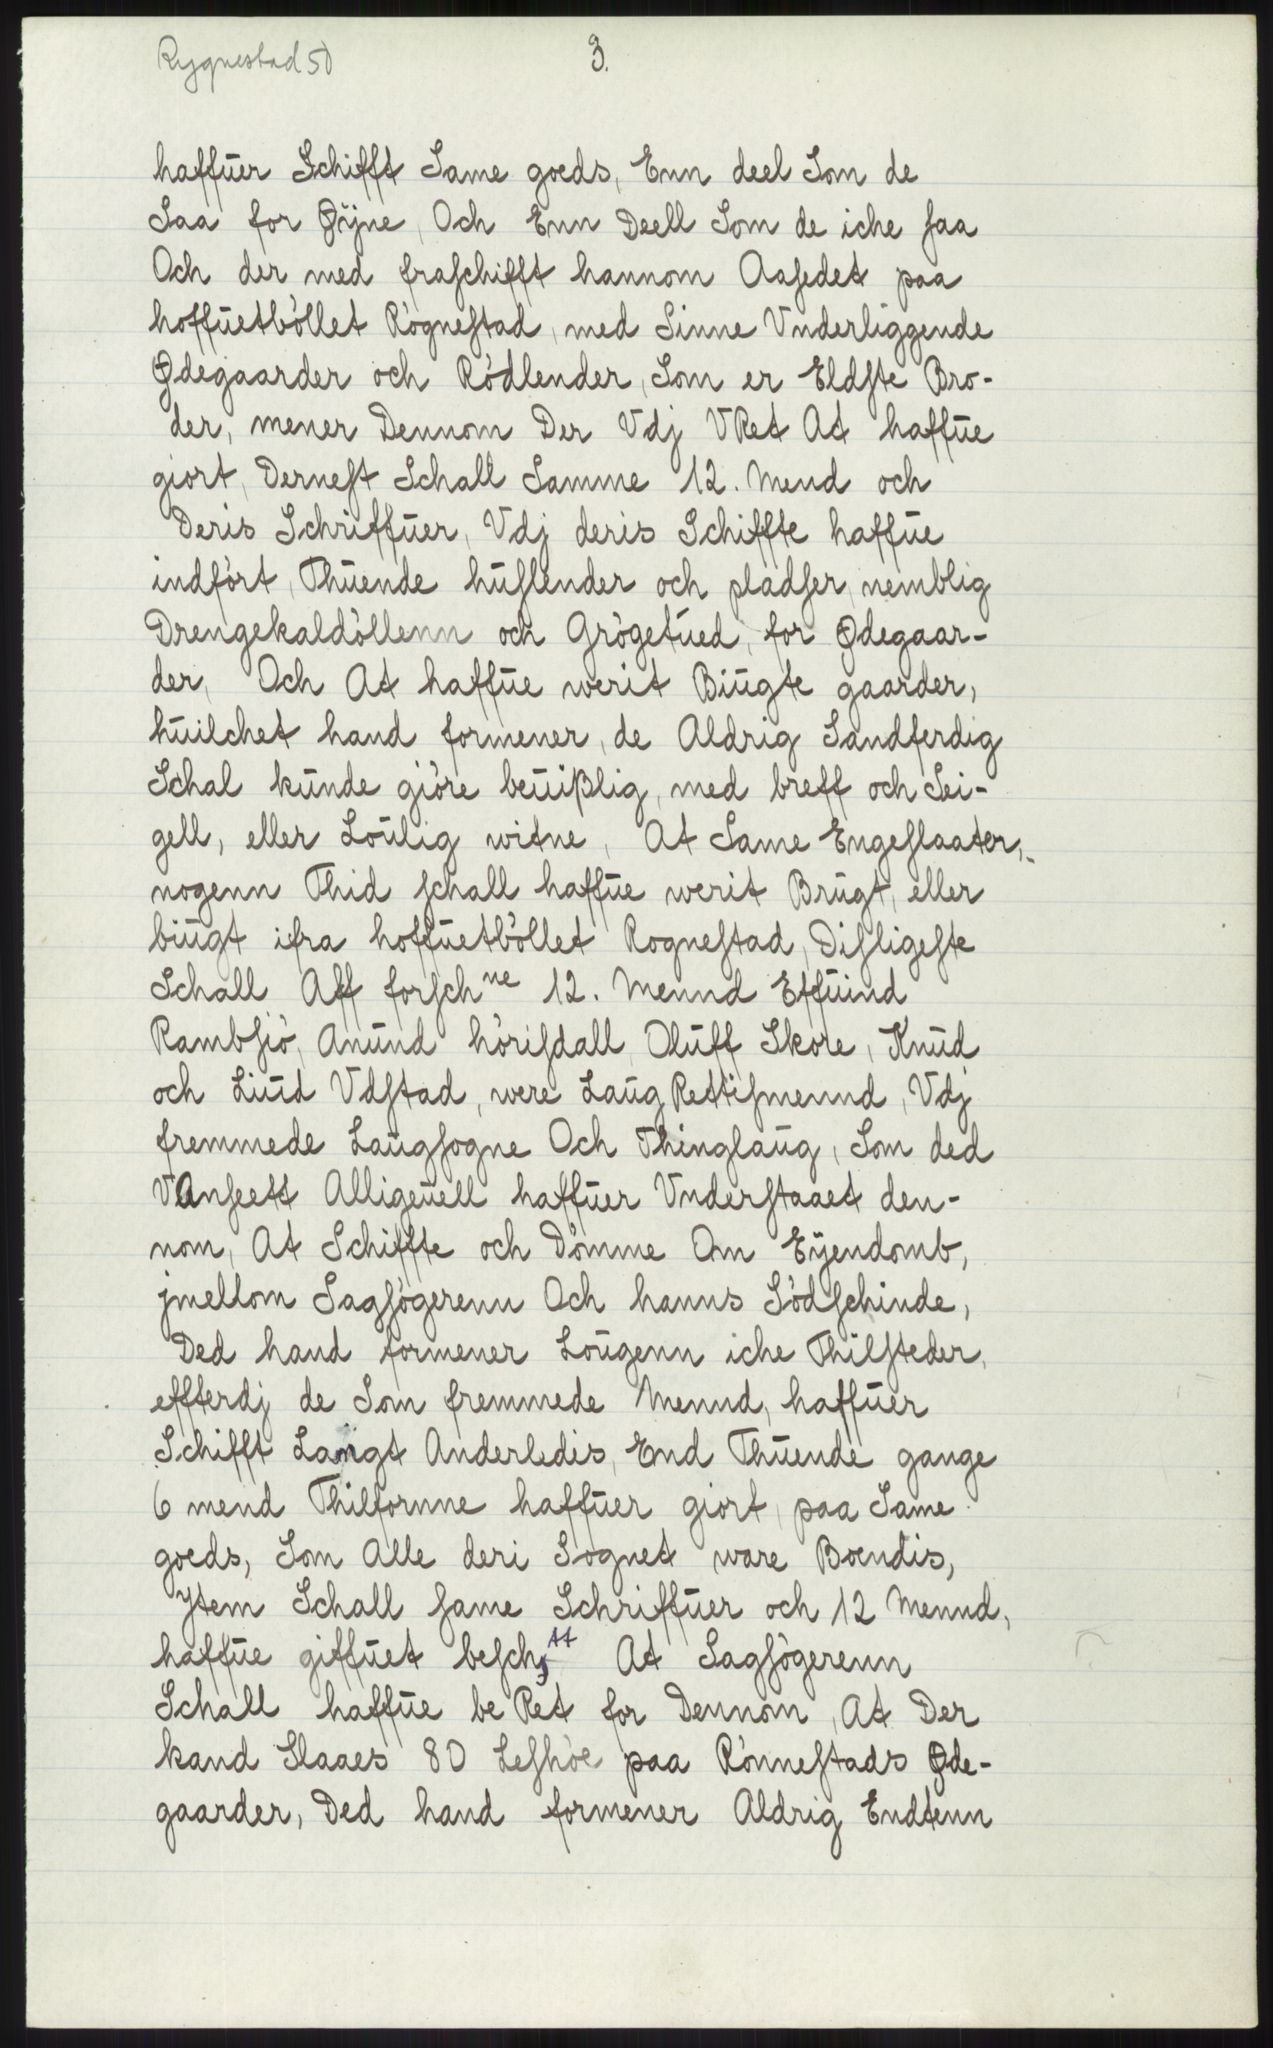 Rygnestad 50
3.
haffuer Schifft Same goeds, Enn deel Som de
Saa for Øÿne, Och Enn Deell Som de iche saa
Och der med fraschifft hannom Aasedet paa
hoffuetböllet Rögnestad, med Sinne Vnderliggende
Ødegaarder och Rödlender, Som er Eldste Bro-
der, mener Dennom Der Vdj VRet At haffue
giort, Dernest Schall Samme 12. Mend och
Deris Schriffuer, Vdj deris Schiffte haffue
indfört, Thuende huslender och pladser, nemblig
Drengekaldöllenn och Grögetued, for Ødegaar-
der, Och At haffue werit Biugte gaarder,
huilchet hand formener, de Aldrig Sandferdig
Schal kunde giöre beuißlig, med breff och Sei-
gell, eller Loulig witne, At Same Engeslaater,
nogenn Thid schall haffue werit Brugt, eller
biugt ifra hoffuetböllet Rognestad, Disligeste
Schall Aff forschne 12. Mennd Effuind
Rambsiö, Anund hörisdall, Oluff Skore, Knud
och Liud Vdstad, were LaugRettismennd, Vdj
fremmede Laugsogne Och Thinglaug, Som ded
VAnseett Alligeuell haffuer Vnderstaaet den-
nom, At Schiffte och Dömme Om Eÿendomb,
jmellom Sagsögerenn Och hanns Södschinde,
Ded hand formener Lougenn iche Thilsteder,
effterdj de Som fremmede Mennd, haffuer
Schifft Langt Anderledis, End Thuende gange
6 mend Thilfornne haffuer giort, paa Same
goeds, Som Alle deri Sognet ware Boendis,
Ytem Schall same Schriffuer och 12 Mennd,
haffue giffuet beschr̃tt At Sagsögerenn
Schall haffue beRet for Dennom, At Der
kand Slaaes 80 Leshöe paa Rönnestads Øde-
gaarder, Ded hand formener Aldrig Endtenn